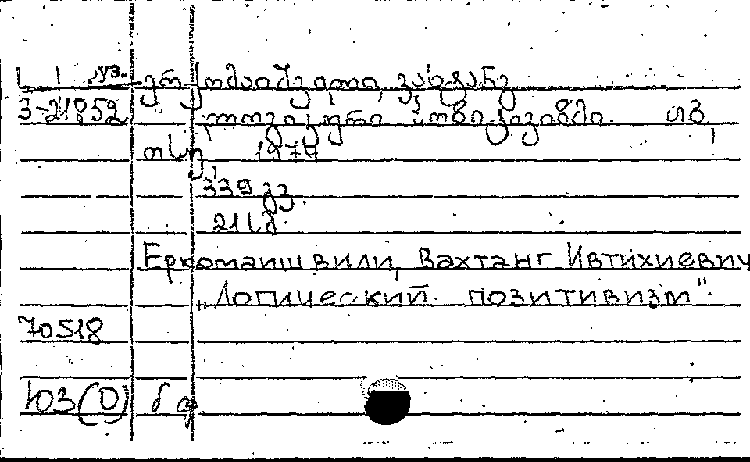 ერქომაიშვილი, ვახტანგ
3-21852 ლოგიკური პოზიტივიზმი. თბ,
თსუ, 1974
339 გვ.
21 სმ.
Еркомаишвили, Вахтанг Ивтихиевич
"Логический позитивизм".
70518
Ю3(0)